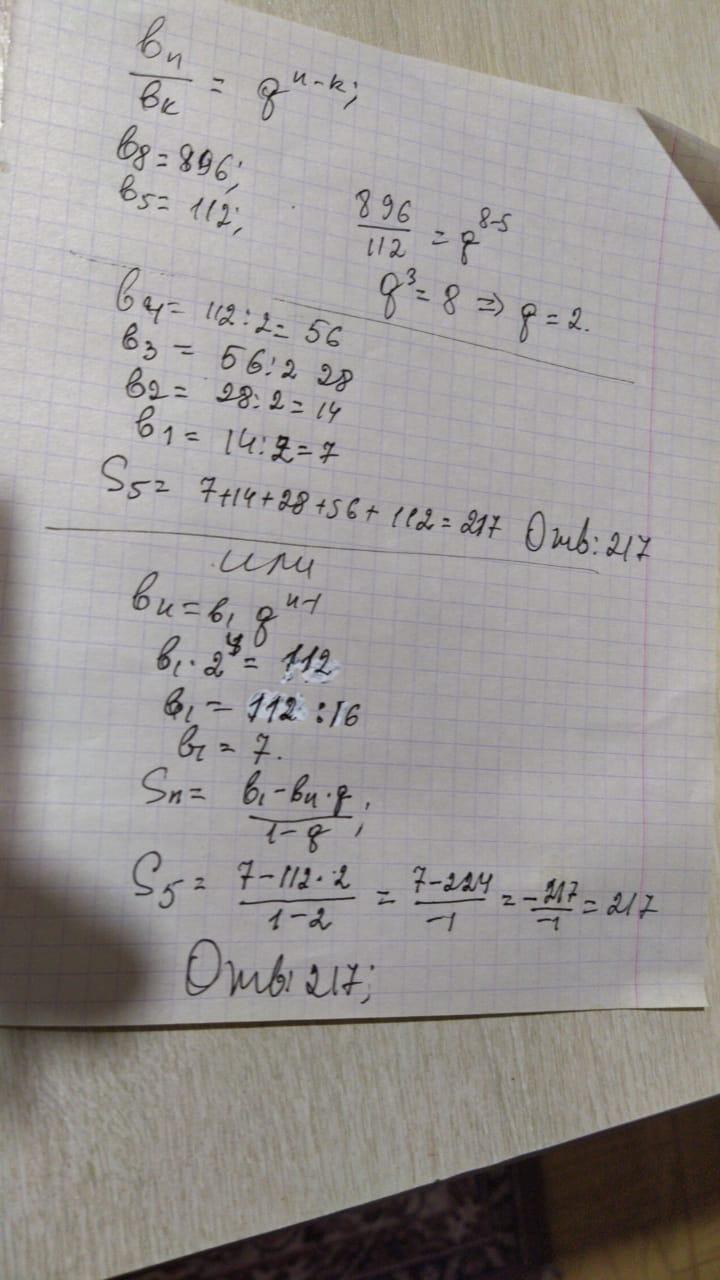 bₙ/bₖ = qⁿ⁻ᵏ;
b₈ = 896;
b₅ = 112;
896/112 = q⁸⁻⁵
q³ = 8 ⇒ q = 2.
b₄ = 112:2 = 56
b₃ = 56:2 28
b₂ = 28:2 = 14
b₁ = 14:2 = 7
S₅ = 7+14+28+56+112 = 217 Отв: 217
или
bₙ = b₁ qⁿ⁻¹
b₁·2⁴ = 112
b₁ = 112:16
b₁ = 7.
Sₙ = (b₁ - bₙ·q)/(1 - q);
S₅ = (7 - 112·2)/(1 - 2) = (7 - 224)/-1 = -217/-1 = 217
Отв: 217;